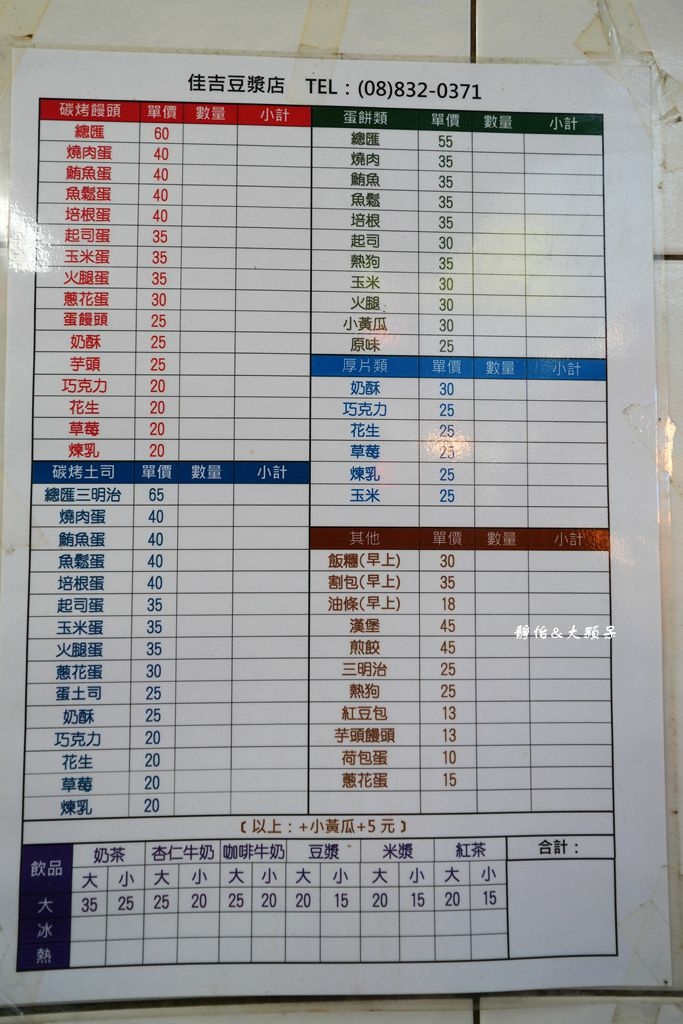 佳吉豆漿店 TEL：(08)832-0371
碳烤饅頭 單價 數量 小計
總匯 60
燒肉蛋 40
鮪魚蛋 40
魚鬆蛋 40
培根蛋 40
起司蛋 35
玉米蛋 35
火腿蛋 35
蔥花蛋 30
蛋饅頭 25
奶酥 25
芋頭 25
巧克力 20
花生 20
草莓 20
煉乳 20
碳烤土司 單價 數量 小計
總匯三明治 65
燒肉蛋 40
鮪魚蛋 40
魚鬆蛋 40
培根蛋 40
起司蛋 35
玉米蛋 35
火腿蛋 35
蔥花蛋 30
蛋土司 25
奶酥 25
巧克力 20
花生 20
草莓 20
煉乳 20
蛋餅類 單價 數量 小計
總匯 55
燒肉 35
鮪魚 35
魚鬆 35
培根 35
起司 30
熱狗 35
玉米 30
火腿 30
小黃瓜 30
原味 25
厚片類 單價 數量 小計
奶酥 30
巧克力 25
花生 25
草莓 25
煉乳 25
玉米 25
其他 單價 數量 小計
飯糰(早上) 30
割包(早上) 35
油條(早上) 18
漢堡 45
煎餃 45
三明治 25
熱狗 25
紅豆包 13
芋頭饅頭 13
荷包蛋 10
蔥花蛋 15
〔以上：+小黃瓜+5元〕
飲品 奶茶 杏仁牛奶 咖啡牛奶 豆漿 米漿 紅茶 合計：
大 小 大 小 大 小 大 小 大 小 大 小
大 35 25 25 20 25 20 20 15 20 15 20 15
冰
熱
靜怡&大顆子